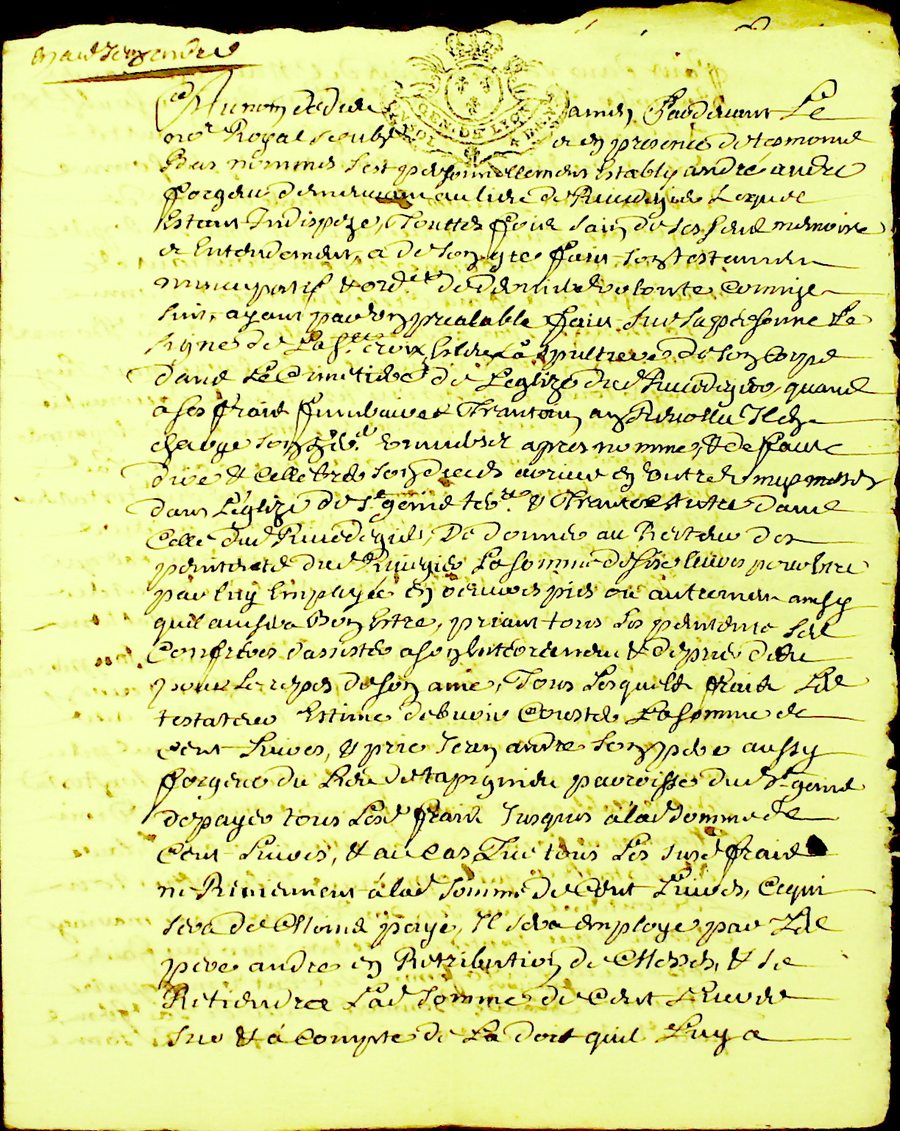 Au nom de dieu amen Pardevant Le
no.re Royal soubs.né et en presence des tesmoins
bas nommes s'est personnellement Estably andré andre
forgeur demeurant au lieu de Rivedegier Lequel
Estant Indispozé, Touttes fois sain de ses sens memoire
et Entendement, a de son gre fait son testament
nuncupatif & ord.re de derniere volonte Comme
suit, ayant par un prealable fait sur sa personne Le
signe de La S.te croix, Eslire La sepulture de son corps
dans Le Cimetiere de L'eglize dud. Rivedegier, quand
a ses frais funebraires
charge son apres nommé, & de faire
dire & cellebrer messes
dans L'églize de St genis & Trante autres dans
Celle dud Rivedegier, De donner au Recteur des
penitents dud Rivegier La somme de six Livres pour Estre
par luy Employée en oeuvres pies ou autrement ainsy
quil avisera Bon Estre, priant tous Les penitents ses
Confreres d'assister a son Enterrement & de prier dieu
pour Le repos de son ame, Tous Lesquels frais Led
testateur Estime debvoir Couster La somme de
Cent Livres, & prie Jean andre son pere aussy
forgeur du Lieu de parroisse dud St genis
de payer tous Lesd frais Jusques à lad somme de
Cent Livres, & au cas Que tous Les susd frais
ne Reviennent à lad somme de Cent Livres, Ce qui
sera de Moins payé, Il sera employe par Led
pere andre en Retribution de Messes, & se
Retiendra Lad somme de Cent Livres
sur & à Compte de La dot quil Luy a